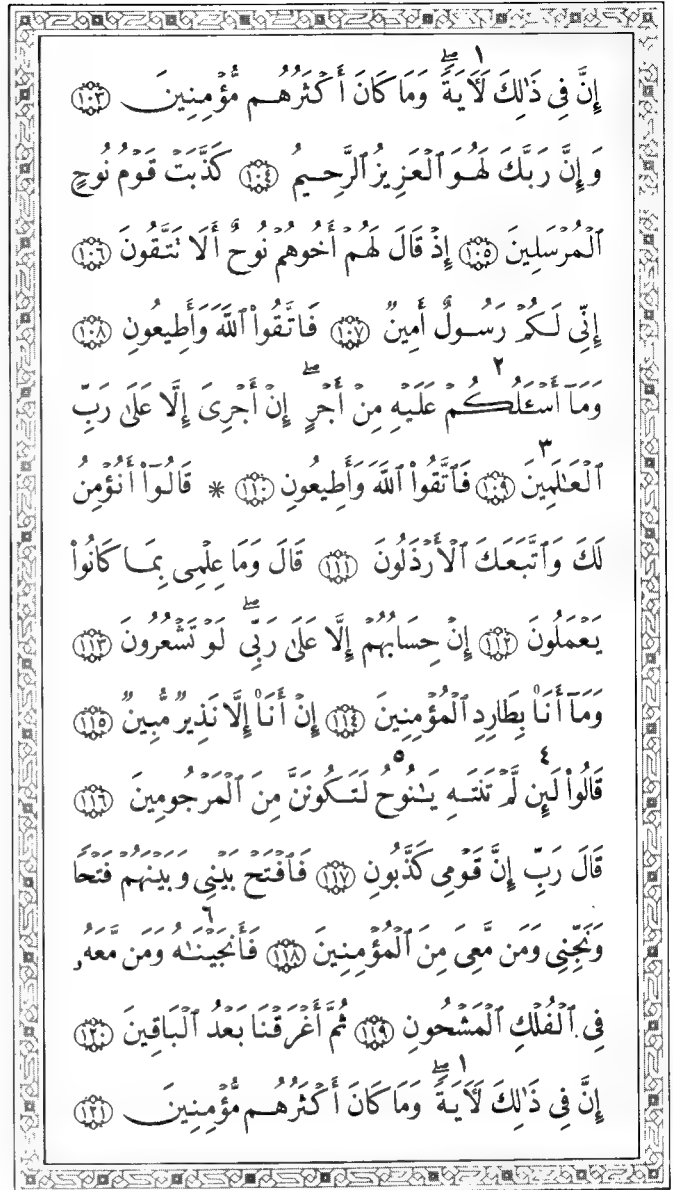 إِنَّ فِى ذَٰلِكَ لَأَيَةً ۖ ١ وَمَا كَانَ أَكْثَرُهُم مُّؤْمِنِينَ ١٠٣
وَإِنَّ رَبَّكَ لَهُوَ ٱلْعَزِيزُ ٱلرَّحِيمُ ١٠٤ كَذَّبَتْ قَوْمُ نُوحٍ
ٱلْمُرْسَلِينَ ١٠٥ إِذْ قَالَ لَهُمْ أَخُوهُمْ نُوحٌ أَلَا تَتَّقُونَ ١٠٦
إِنِّى لَكُمْ رَسُولٌ أَمِينٌ ١٠٧ فَاتَّقُوا۟ ٱللَّهَ وَأَطِيعُونِ ١٠٨
وَمَآ أَسْـَٔلُكُمْ عَلَيْهِ مِنْ أَجْرٍ ۖ إِنْ أَجْرِىَ ٢ إِلَّا عَلَىٰ رَبِّ
ٱلْعَـٰلَمِينَ ٣ ١٠٩ فَٱتَّقُوا۟ ٱللَّهَ وَأَطِيعُونِ ١١٠ * قَالُوٓا۟ أَنُؤْمِنُ
لَكَ وَٱتَّبَعَكَ ٱلْأَرْذَلُونَ ١١١ قَالَ وَمَا عِلْمِى بِمَا كَانُوا۟
يَعْمَلُونَ ١١٢ إِنْ حِسَابُهُمْ إِلَّا عَلَىٰ رَبِّى ۖ لَوْ تَشْعُرُونَ ١١٣
وَمَآ أَنَا۠ بِطَارِدِ ٱلْمُؤْمِنِينَ ١١٤ إِنْ أَنَا۠ إِلَّا نَذِيرٌ مُّبِينٌ ١١٥
قَالُوا۟ لَئِن ٤ لَّمْ تَنتَهِ يَـٰنُوحُ ٥ لَتَكُونَنَّ مِنَ ٱلْمَرْجُومِينَ ١١٦
قَالَ رَبِّ إِنَّ قَوْمِى كَذَّبُونِ ١١٧ فَٱفْتَحْ بَيْنِى وَبَيْنَهُمْ فَتْحًا
وَنَجِّنِى وَمَن مَّعِىَ مِنَ ٱلْمُؤْمِنِينَ ١١٨ فَأَنجَيْنَـٰهُ ٦ وَمَن مَّعَهُۥ
فِى ٱلْفُلْكِ ٱلْمَشْحُونِ ١١٩ ثُمَّ أَغْرَقْنَا بَعْدُ ٱلْبَاقِينَ ١٢٠
إِنَّ فِى ذَٰلِكَ لَأَيَةً ۖ ١ وَمَا كَانَ أَكْثَرُهُم مُّؤْمِنِينَ ١٢١